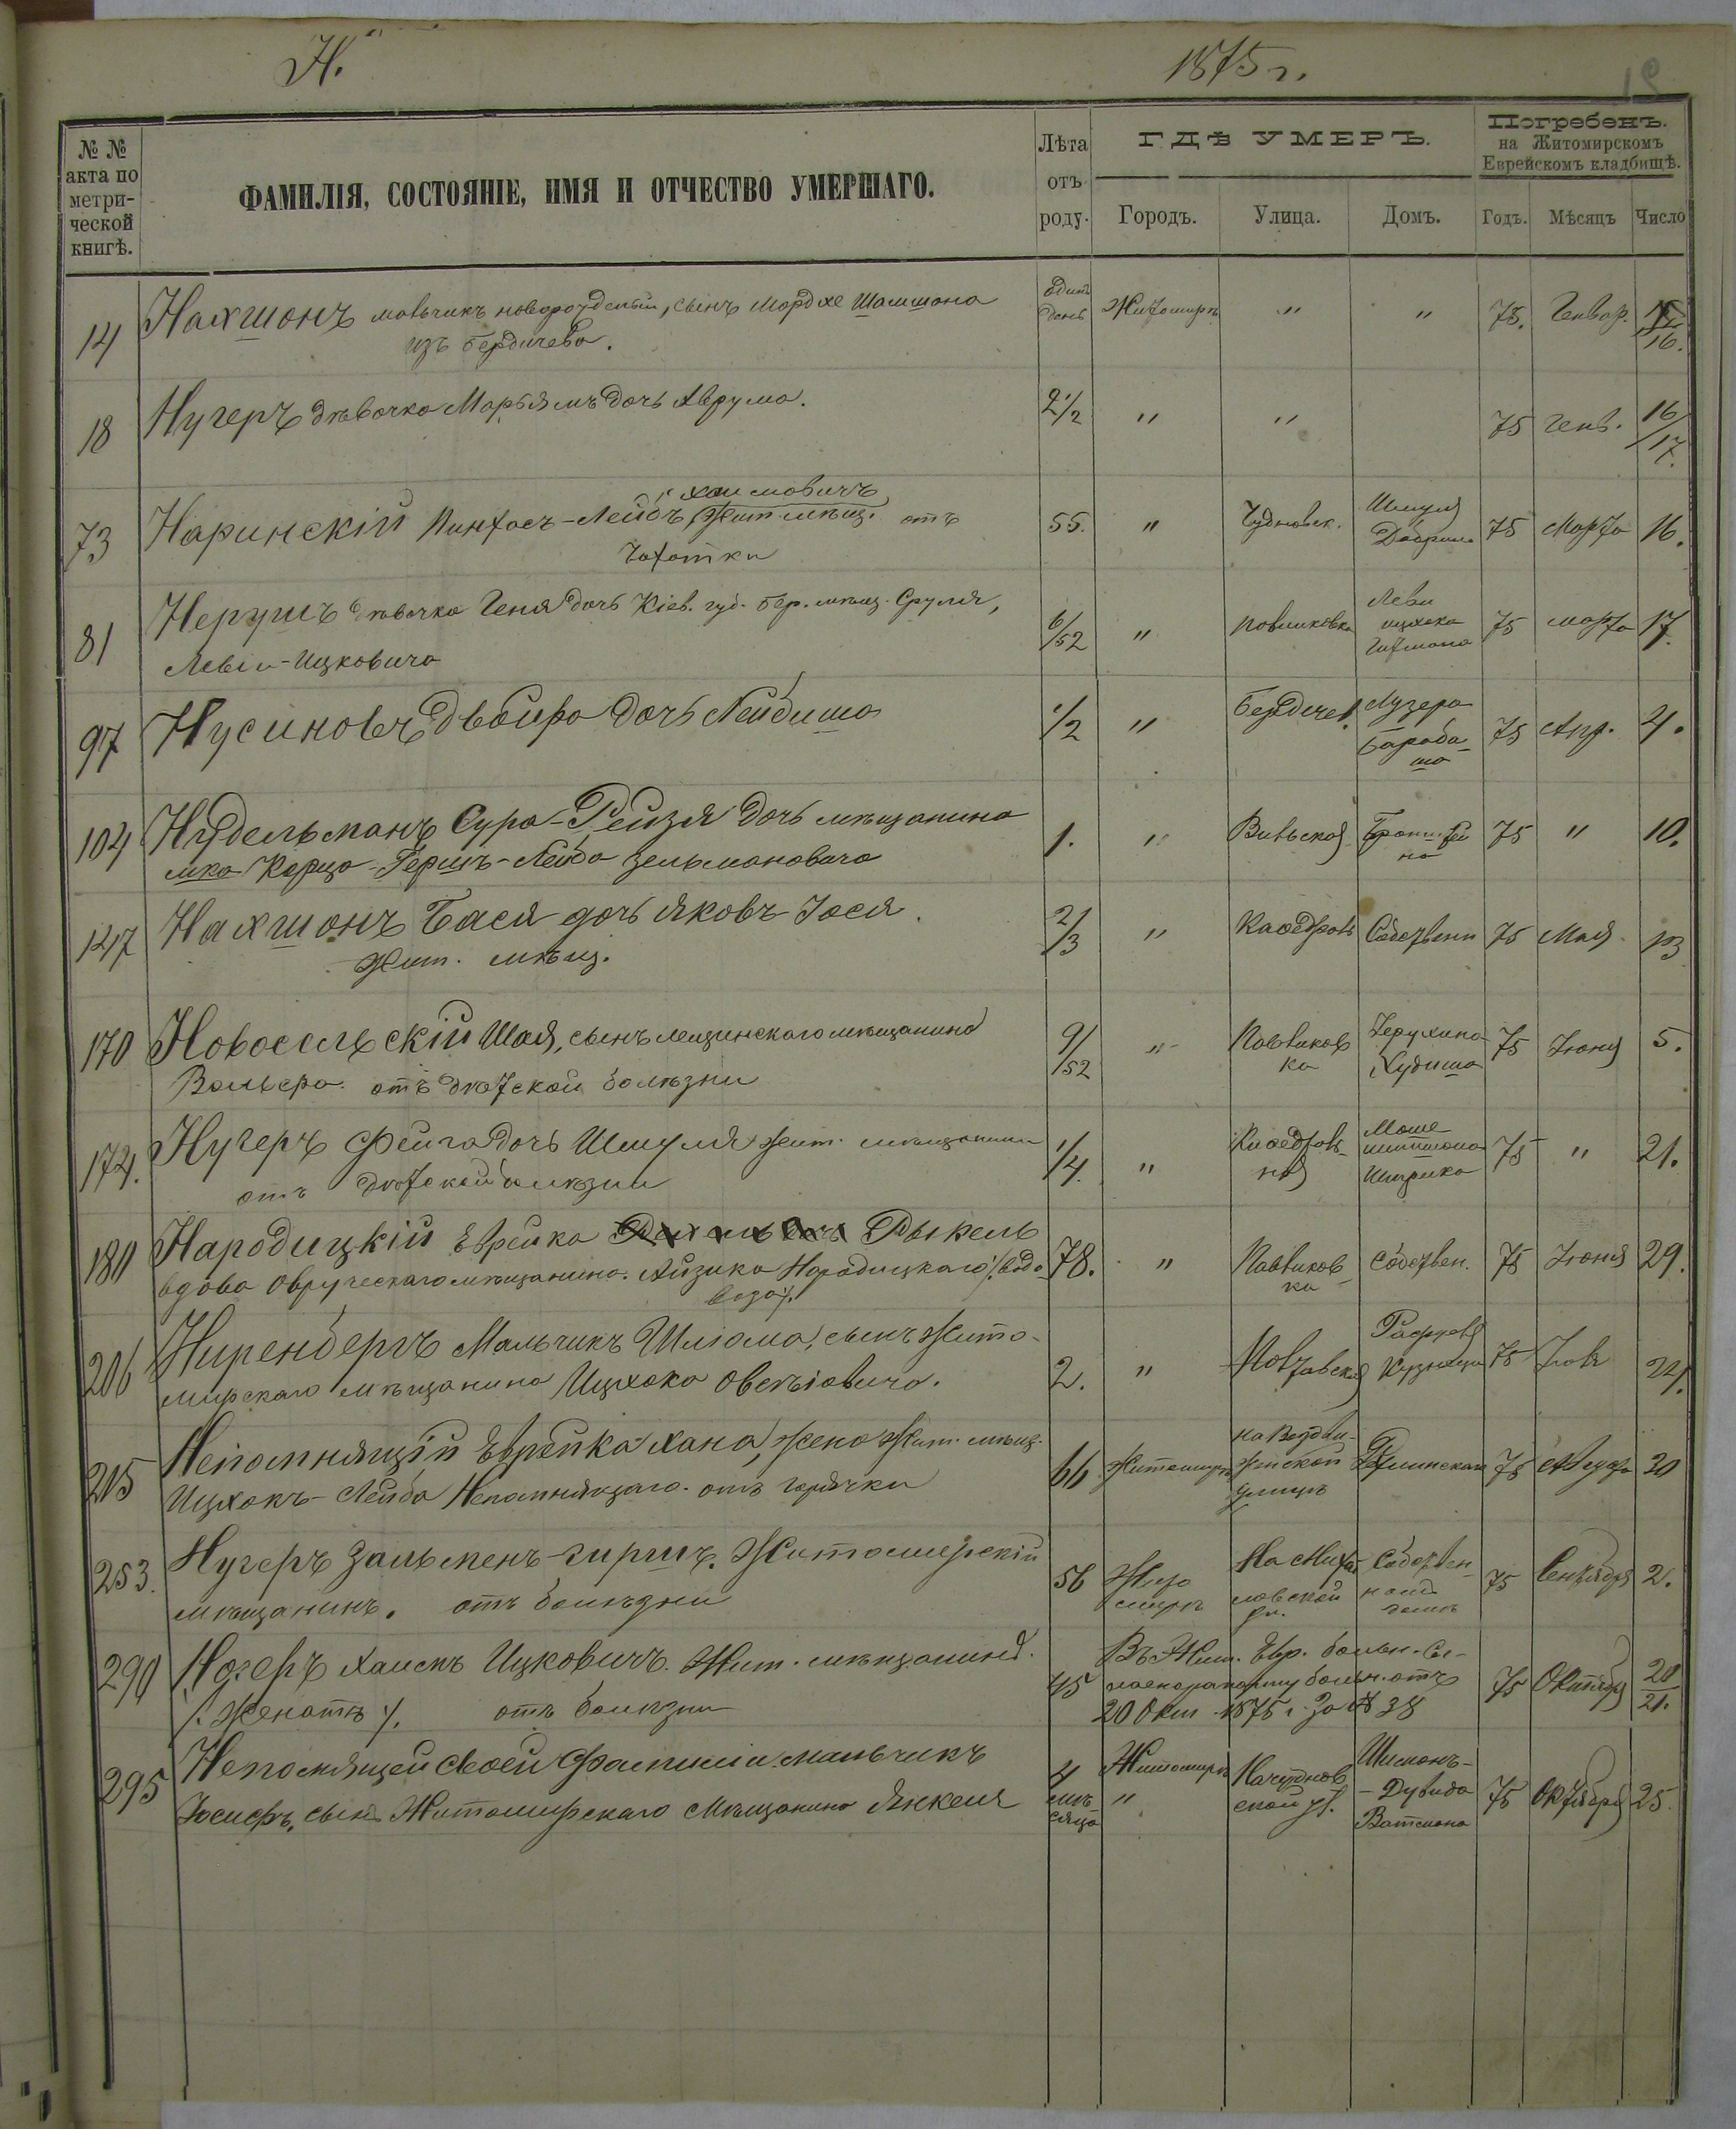 Н.
1875 г.
19
№ № акта по метрической книгѣ.
ФАМИЛІЯ, СОСТОЯНІЕ, ИМЯ И ОТЧЕСТВО УМЕРШАГО.
Лѣта отъ роду.
ГДѢ УМЕРЪ.
Городъ. Улица. Домъ.
Погребенъ.
на Житомирскомъ
Еврейскомъ кладбищѣ.
Годъ. Мѣсяцъ Число
14 Нахшонъ мальчикъ новорожденый, сынъ Мордхе Шамшона один день Житомиръ " " 75. Генвар. 16.
изъ Бердичева.
18 Нугеръ дѣвочка Марьямъ дочь Аврума. 2½ " " 75 Генв. 16/17.
Хаимовичъ
73 Наринскій Пинхасъ-Лейбъ Жит. мѣщ. отъ 55. " Чудновск. Шмуля 75 Марта 16.
чахотки
81 Нерушъ дѣвочка Геня дочь Кіев. губ. Бер. мѣщ. Сруля, 6/52 " Павликовка Леви Ицхока 75 марта 17.
Левіи-Ицковича
97 Нусиновъ Двойра дочь Лейбиша ½ " Бердичев. Лузера Барабаша 75 Апр. 4.
104 Нудельманъ Сура-Рейзя дочь мѣщанина 1. " Вильская 75 " 10.
мка Корца-Гершъ-Лейба Зельмановича
147 Нахшонъ Бася дочь Яковъ Іося. 2/3 " Каѳедралъ Собствен 75 Мая 13
Жит. мѣщ.
170 Новосельскій Шая, сынъ мѣщанина 9/52 " Павликовка 75 Іюня 5.
отъ дѣтской болѣзни
174. Нугеръ Фейга дочь Шмуля Жит. мѣщанина ¼. " Каѳедральная Моше 75 " 21.
отъ дѣтской болѣзни
180 Народицкій Еврейка Рыкель 78. " Павликовка собствен. 75 Іюня 29.
вдова Овручскаго мѣщанина Айзика Народицкаго /: водовоза :/
206 Ниренбергъ Мальчикъ Шлиома, сынъ Жито- 2. " 75
мирскаго мѣщанина Ицхока Овсѣіовича.
215 Непомнящій Еврейка Хана, жена Жит. мѣщ. 66 Житомиръ на Воздвиженской улицѣ 75 Августа 20
Ицхокъ-Лейба Непомнящаго. отъ горячки
253. Нугеръ Зальменъ-Гиршъ. Житомирскій 56 Житомиръ На Михайловской ул. Собственномъ домѣ 75 Сентября 2.
мѣщанинъ. отъ болѣзни
290 Нагеръ Хаимъ Ицковичъ. Жит. мѣщанинъ. 45 Въ Жит. Евр. больн. 75 Октября 20/21.
/: Женатъ :/. отъ болѣзни 20 Окт. 1875 г. за № 38
295 Непомнящей своей Фамиліи мальчикъ 4 мѣсяца Житомиръ " На Чудновской ул. Шимонъ-Дувида Ватмана 75 Октября 25.
Іосифъ, сынъ Житомирскаго Мѣщанина Янкеля